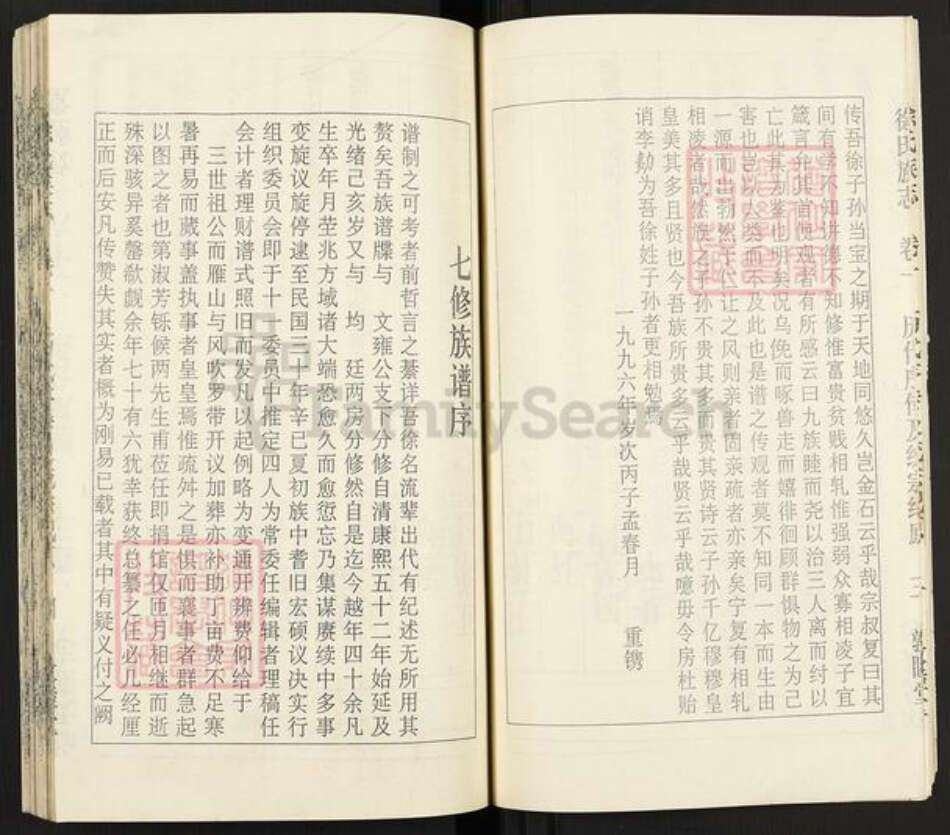 传吾徐子孙当宝之期于天地同悠久岂金石云乎哉宗叔复曰其
间有学不知讲德不知修惟富贵贫贱相轧惟强弱众寡相凌子宜
箴言弁其首使观者有所感云曰九族睦而尧以治三人离而纣以
亡此其为鉴也明矣况乌俛而啄兽走而嬉徘徊顾群惧物之为己
害也岂以人类而不及此也是谱之传观者莫不知同一本而生由
一源而出勃然于代让之风则亲者固亲疏者亦亲矣宁复有相轧
相凌者哉然族之子孙不贵其多而贵其贤诗云子孙千亿穆穆皇
皇美其多且贤也今吾族所贵多云乎哉贤云乎哉噫毋令房杜贻
诮李勣为吾徐姓子孙者更相勉焉
一九九六年岁次丙子孟春月 重镌
七修族谱序
谱制之可考者前哲言之綦详吾徐名流辈出代有纪述无所用其
赘矣吾族谱牒与 文雍公支下分修自清康熙五十二年始延及
光绪己亥岁又与 均 廷两房分修然自是迄今越年四十余凡
生卒年月茔兆方域诸大端恐愈久而愈愆忘乃集谋赓续中多事
变旋议旋停逮至民国三十年辛巳夏初族中耆旧宏硕议决实行
组织委员会即于十一委员中推定四人为常委任编辑者理稿任
会计者理财谱式照旧而发凡以起例略为变通开辨费仰给于
三世祖公而雁山与风吹罗带开议加葬亦补助丁亩费不足寒
暑再易而蒇事盖执事者皇皇焉惟疏舛之是惧而襄事者群急起
以图之者也第淑芳铄候两先生甫莅任即捐馆仅匝月相继而逝
殊深骇异奚罄欷觑余年七十有六犹幸获终总纂之任必几经厘
正而后安凡传赞失其实者概为刚易已载者其中有疑义付之阙
徐氏族志 卷一
FamilySearch